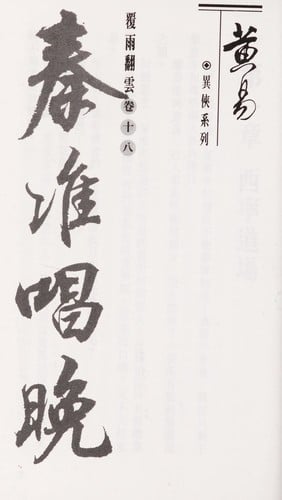 黃易
異俠系列
覆雨翻雲卷十八
秦淮唱晚